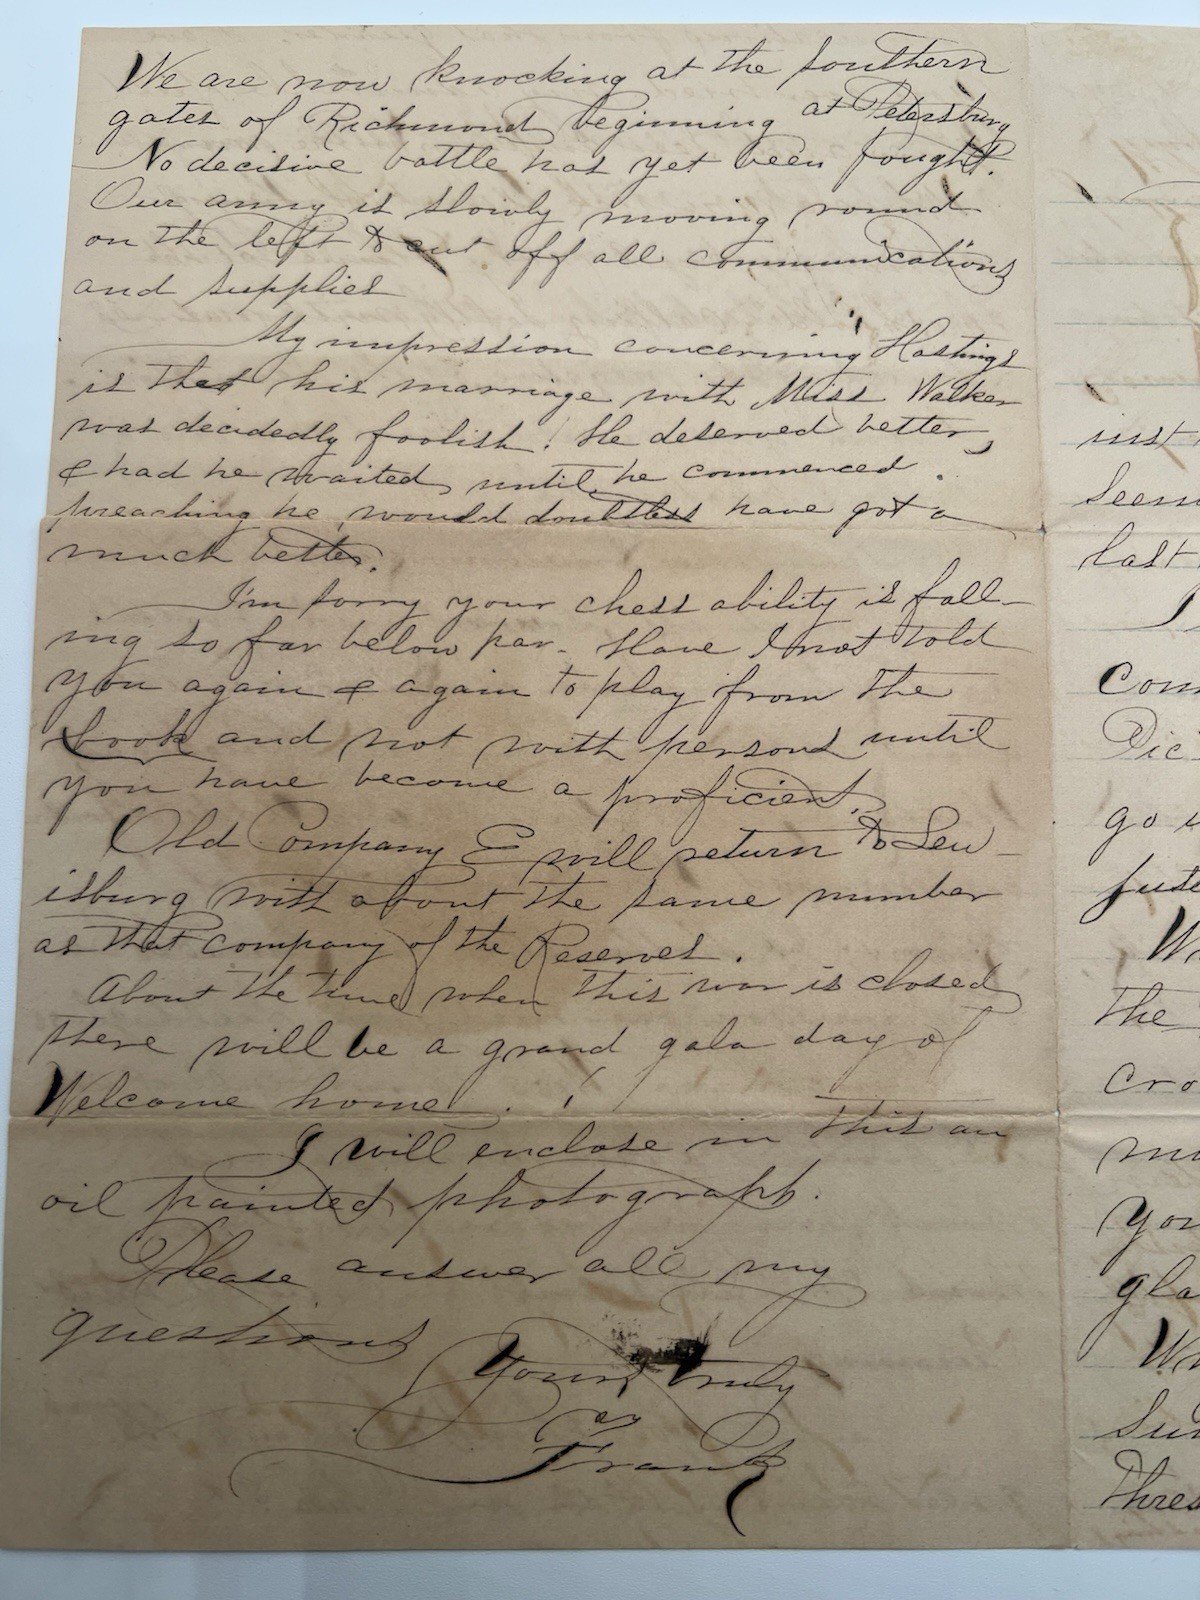 We are now knocking at the southern
gates of Richmond beginning at Petersburg
No decisive battle has yet been fought.
Our army is slowly moving round
on the left to cut off all communications
and supplies
My impression concerning Hastings
is that his marriage with Miss Walker
was decidedly foolish! He deserved better,
& had he waited until he commenced
preaching he would doubtless have got a
much better.
I'm sorry your chess ability is fall-
ing so far below par. Have I not told
you again & again to play from the
book and not with persons until
you have become a proficient.
Old Company E will return to Lew-
isburg with about the same number
as that company of the Reserves.
About the time when this war is closed
there will be a grand gala day of
Welcome home!
I will enclose in this an
oil painted photograph.
Please answer all my
questions
Yours truly
Frank
inst
Seem
last
I
com
go
fut
the
cro
you
gla
Thres